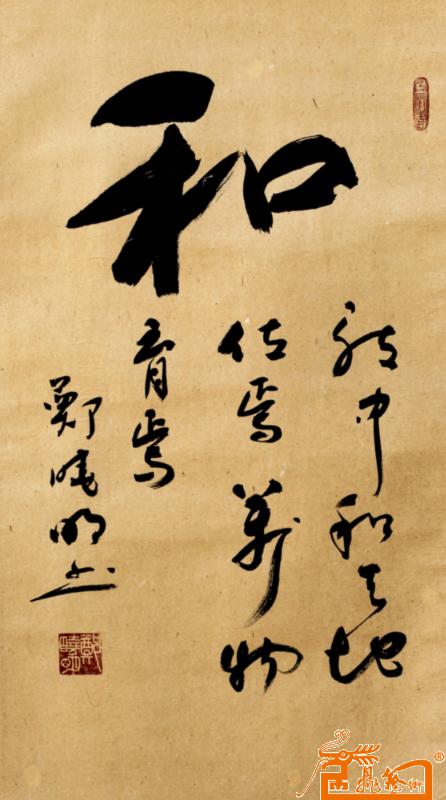 和
致中和天地
位焉萬物
育焉
鄭晓明书